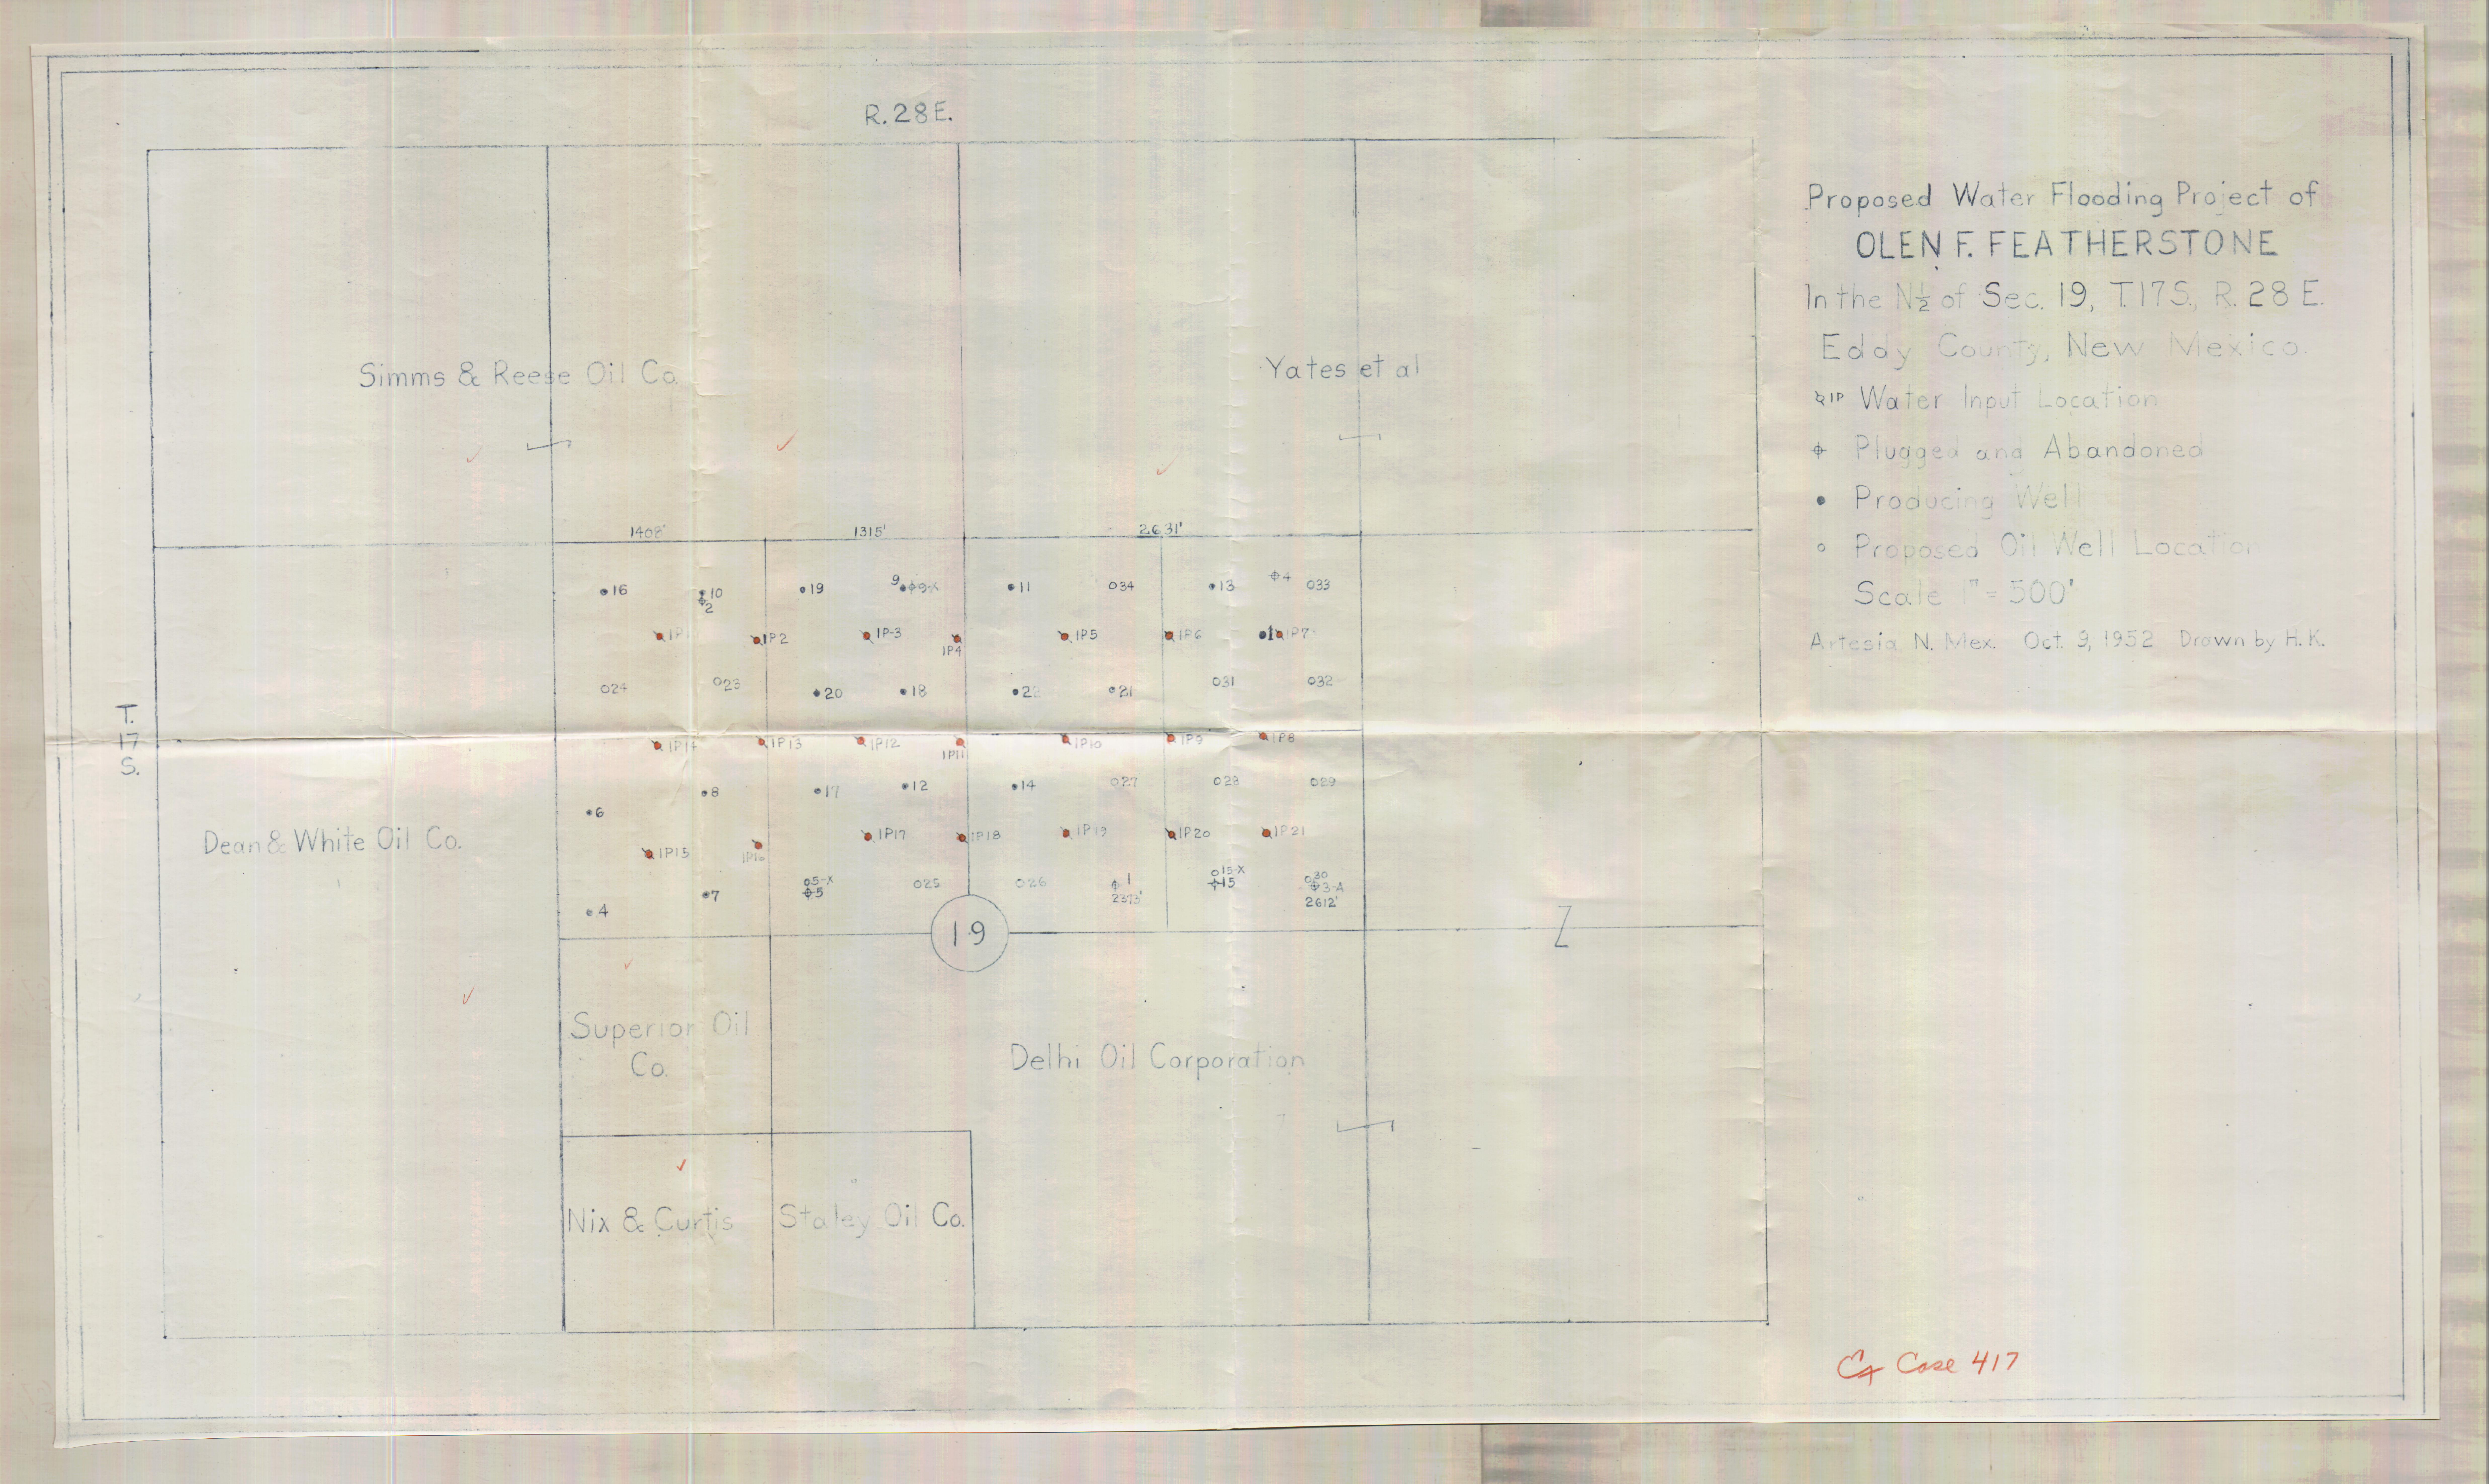 R. 28 E.
Proposed Water Flooding Project of
OLEN F. FEATHERSTONE
In the N½ of Sec. 19, T.17S., R. 28 E.
Eddy County, New Mexico.
IP Water Input Location
Plugged and Abandoned
Producing Well
Proposed Oil Well Location
Scale 1" = 500'
Artesia, N. Mex. Oct. 9, 1952 Drawn by H. K.
Simms & Reese Oil Co.
Yates et al
1408' 1315' 2631'
16 10 19 9 9-X 11 34 13 4 33
2
IP1 IP2 IP-3 IP4 IP5 IP6 1 IP7
24 23 20 18 22 21 31 32
T.
17
S.
IP14 IP13 IP12 IP11 IP10 IP9 IP8
6 8 17 12 14 27 28 29
Dean & White Oil Co.
IP15 IP16 IP17 IP18 IP19 IP20 IP21
4 7 5-X 25 26 1 15-X 30
5 2373' 15 3-A
2612'
19
Superior Oil
Co.
Delhi Oil Corporation
Nix & Curtis
Staley Oil Co.
Case 417